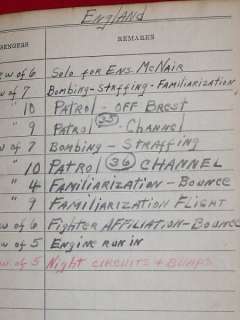 England
SSENGERS REMARKS
ew of 6 Solo for Ens. McNair
ew of 7 Bombing-Straffing-Familiarization
" 10 Patrol - Off Brest
" 9 Patrol 35 - Channel
ew of 7 Bombing - Straffing
" 10 Patrol 36 CHANNEL
" 4 Familiarization - Bounce
" 9 Familiarization Flight
ew of 6 Fighter Affiliation-Bounce
ew of 5 Engine run in
ew of 5 Night circuits & Bumps